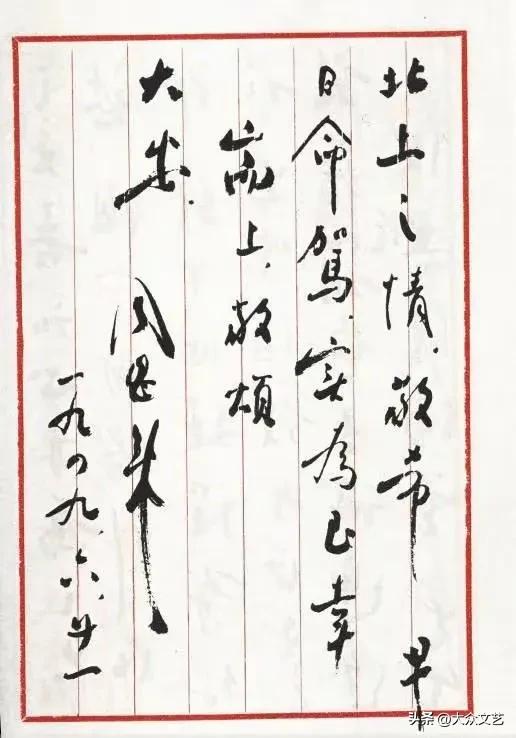 北上之情.敬希早
日命駕.实为至幸
耑上.敬頌
大安.
周恩来
一九四九.六.廿一
头条@大众文艺